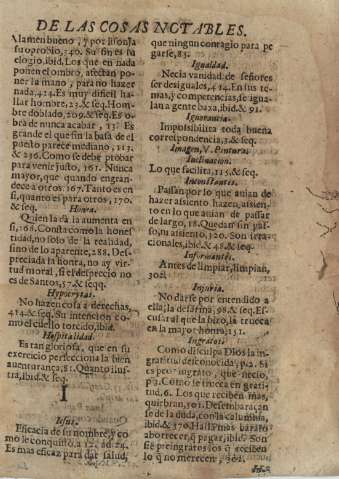 DE LAS COSAS NOTABLES.
alamen bueno, y por lisonja
su oprobio, 340. Su fin es su
elogio, ibid. Los que en nada
ponen el ombro, afectan poner
la mano, para no hazer
nada, 424. Es muy dificil hallar
hombre, 23. & seq. Hombre
doblado, 209. & seqq. Obra
de nunca acabar, 13. Es
grande el que sin la basa de el
puesto parece mediano, 113.
& 256. Como se debe probar
para venir justo, 167. Nunca
mayor, que quando engrandece
a otros 167. Tanto es en
si, quanto es para otros, 170.
& seq.
Honra.
Quien la da la aumenta en
si, 168. Consta como la honestidad,
no solo de la realidad,
sino de lo aparente, 288. Despreciada
la honra, no ay virtud
moral, si el desprecio no
es de Santos, 57. & seqq.
Hypocrytas.
No hazen cosa a derechas,
414. & seq. Su intencion como
el cuello torcido, ibid.
Hospitalidad.
Es tan gloriosa, que en su
exercicio perfecciona la bien
aventurança, 81. Quanto ilustra,
ibid. & seq.
I
Iesus.
Eficacia de su nombre, y como
le conquistò, a 12. ad 24.
Es mas eficaz para dar salud,
que ningun contagio para pegarse,
83.
Igualdad.
Necia vanidad de señores
ser desiguales, 414. En sus temas,
y competencias, se igualan
a gente baxa, ibid. & 91.
Ignorancia.
Impossibilita toda buena
correspondencia, 3. & seq.
Imagen, V. Pintura.
Inclinacion.
Lo que facilita, 115. & seq.
Inconstantes.
Passan por lo que auian de
hazer assiento hazen, assiento
en lo que auian de passar
de largo, 18. Quedan sin passo,
ni assiento, 120. Son irracionales,
ibid. & 48. & seq.
Informantes.
Antes de limpiar, limpian,
302.
Injuria.
No darse por entendido a
ella; la desarma, 98. & seq. Escusar
al que la hizo, la trueca
en la mayor honra, 151.
Ingratos.
Como disculpa Dios la ingratitud
desconocida, 92. Si
es peor ingrato, que necio,
92. Como se trueca en gratitud,
6. Los que reciben mas,
quiebran, 301. Desembaraçanse
de la duda, con la calumnia,
ibid. & 370. Hallan mas barato
aborrecer, q pagar, ibid. Son
siempre ingratos los q reciben
lo q no merecen, 362.